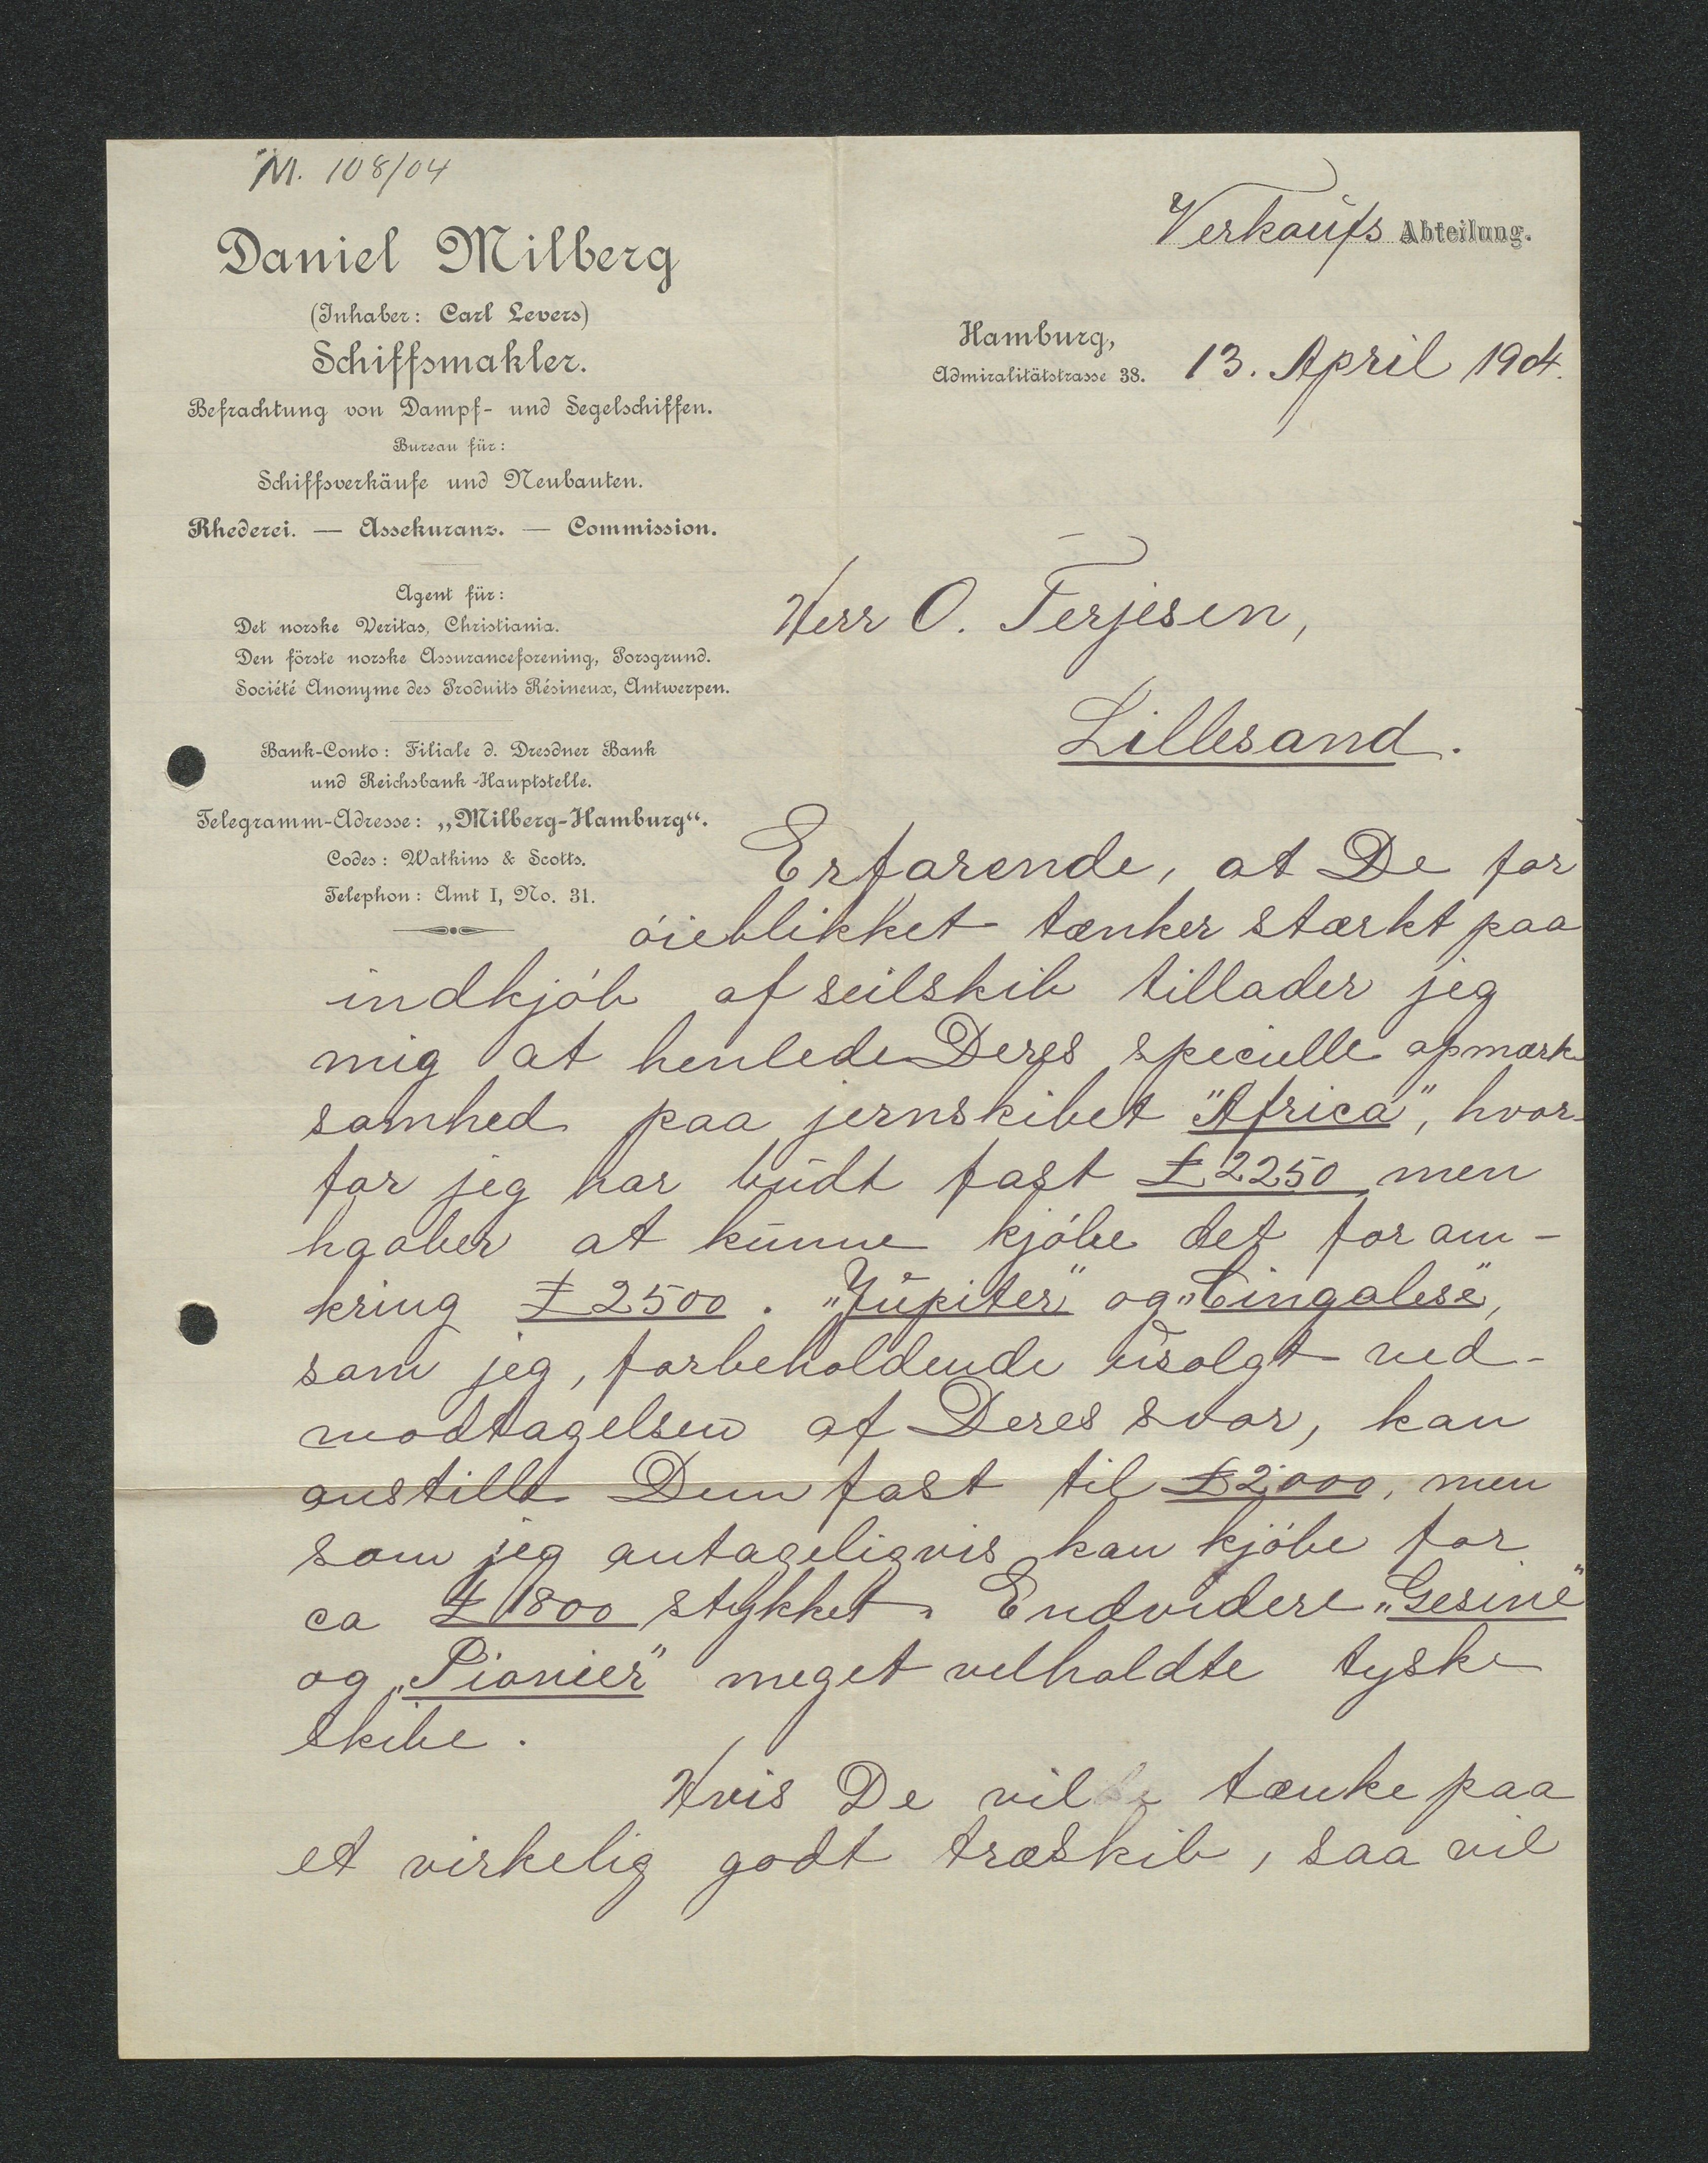 M. 108/04
Daniel Milberg
(Inhaber: Carl Levers)
Schiffsmakler.
Befrachtung von Dampf- und Segelschiffen.
Bureau für:
Schiffsverkäufe und Neubauten.
Rhederei. — Assekuranz. — Commission.
Agent für:
Det norske Veritas, Christiania.
Den förste norske Assuranceforening, Porsgrund.
Société Anonyme des Produits Résineux, Antwerpen.
Bank-Conto: Filiale d. Dresdner Bank
und Reichsbank-Hauptstelle.
Telegramm-Adresse: „Milberg-Hamburg“.
Codes: Watkins & Scotts.
Telephon: Amt I, No. 31.
Verkaufs Abteilung.
Hamburg,
Admiralitätstrasse 38. 13. April 1904.
Herr O. Terjesen,
Lillesand.
Erfarende, at De for
óieblikket tænker stærkt paa
indkjób af seilskib tillader jeg
mig at henlede Deres specielle opmærk
somhed paa jernskibet "Africa", hvor-
for jeg har budt fast £2250 men
haaber at kunne kjóbe det for om-
kring £2500. „Jupiter" og „Cingalese",
som jeg, forbeholdende usolgt ved-
modtagelsen af Deres svar, kan
anstille Dem fast til £2000, men
som jeg antageligvis kan kjóbe for
ca £1800 stykket. Endvidere „Gesine"
og „Pionier" meget velholdte tyske
skibe.
Hvis De vil tænke paa
et virkelig godt træskib, saa vil